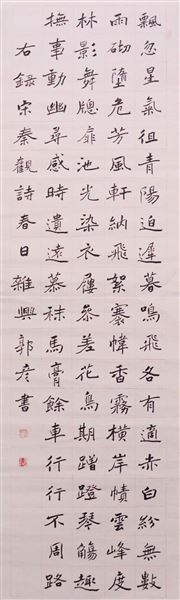 飄忽星氣徂青陽迫遲暮鳴飛各有適赤白紛無數
雨砌墮危芳風軒納飛絮褰幃香霧橫岸幘雲峰度
林影舞牕扉池光染衣屨參差花鳥期蹭蹬琴觴趣
撫事動幽尋感時遺遠慕秣馬膏餘車行行不周路
右錄宋秦觀詩春日雜興郭彥書